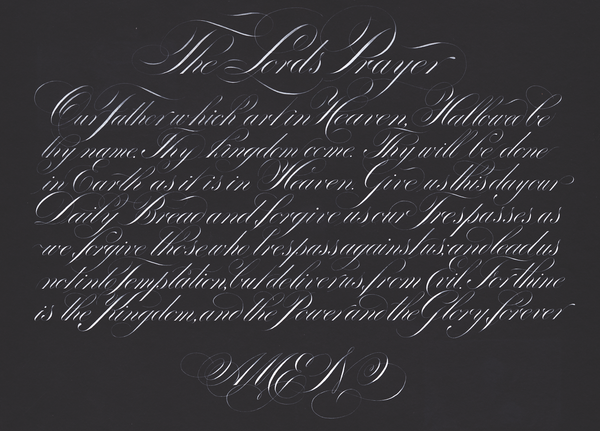 The Lord's Prayer
Our Father which art in Heaven, Hallowed be
thy name. Thy kingdom come. Thy will be done
in Earth as it is in Heaven. Give us this day our
Daily Bread and, forgive us our Trespasses as
we, forgive those who trespass against us; and lead us
not into Temptation, but deliver us, from Evil. For thine
is the Kingdom, and the Power and the Glory, forever
AMEN